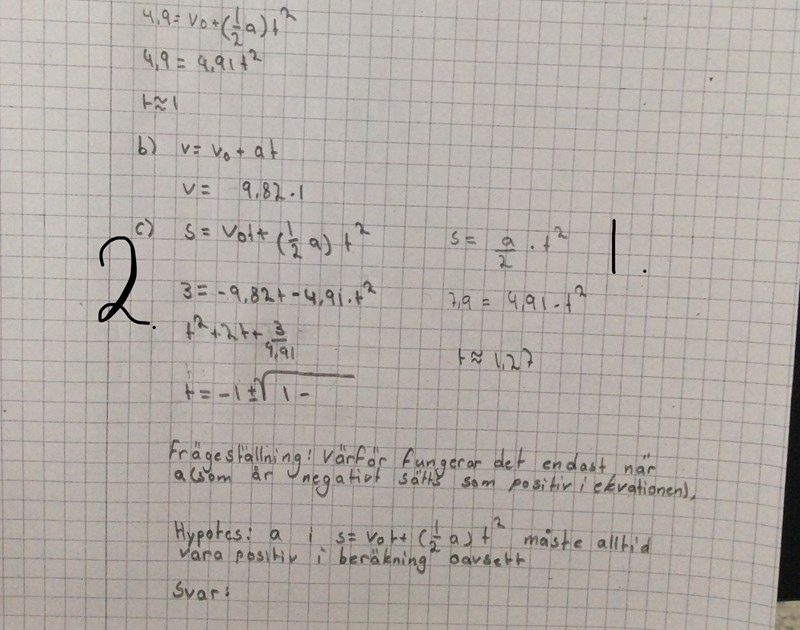 4,9 = v₀ + (½a)t²
4,9 = 4,91t²
t ≈ 1
b) v = v₀ + at
v = 9,82 · 1
c) s = v₀t + (½a) t²
s = a/2 · t²
1.
2.
3 = -9,82t - 4,91 · t²
7,9 = 4,91 · t²
t² + 2t + 3/4,91
t ≈ 1,27
t = -1 ± √1 -
Frågeställning: Värför fungerar det endast när
a(som är negativt sätts som positiv i ekvationen).
Hypotes: a i s = v₀t + (½a) t² måste alltid
vara positiv i beräkning oavsett
Svar: